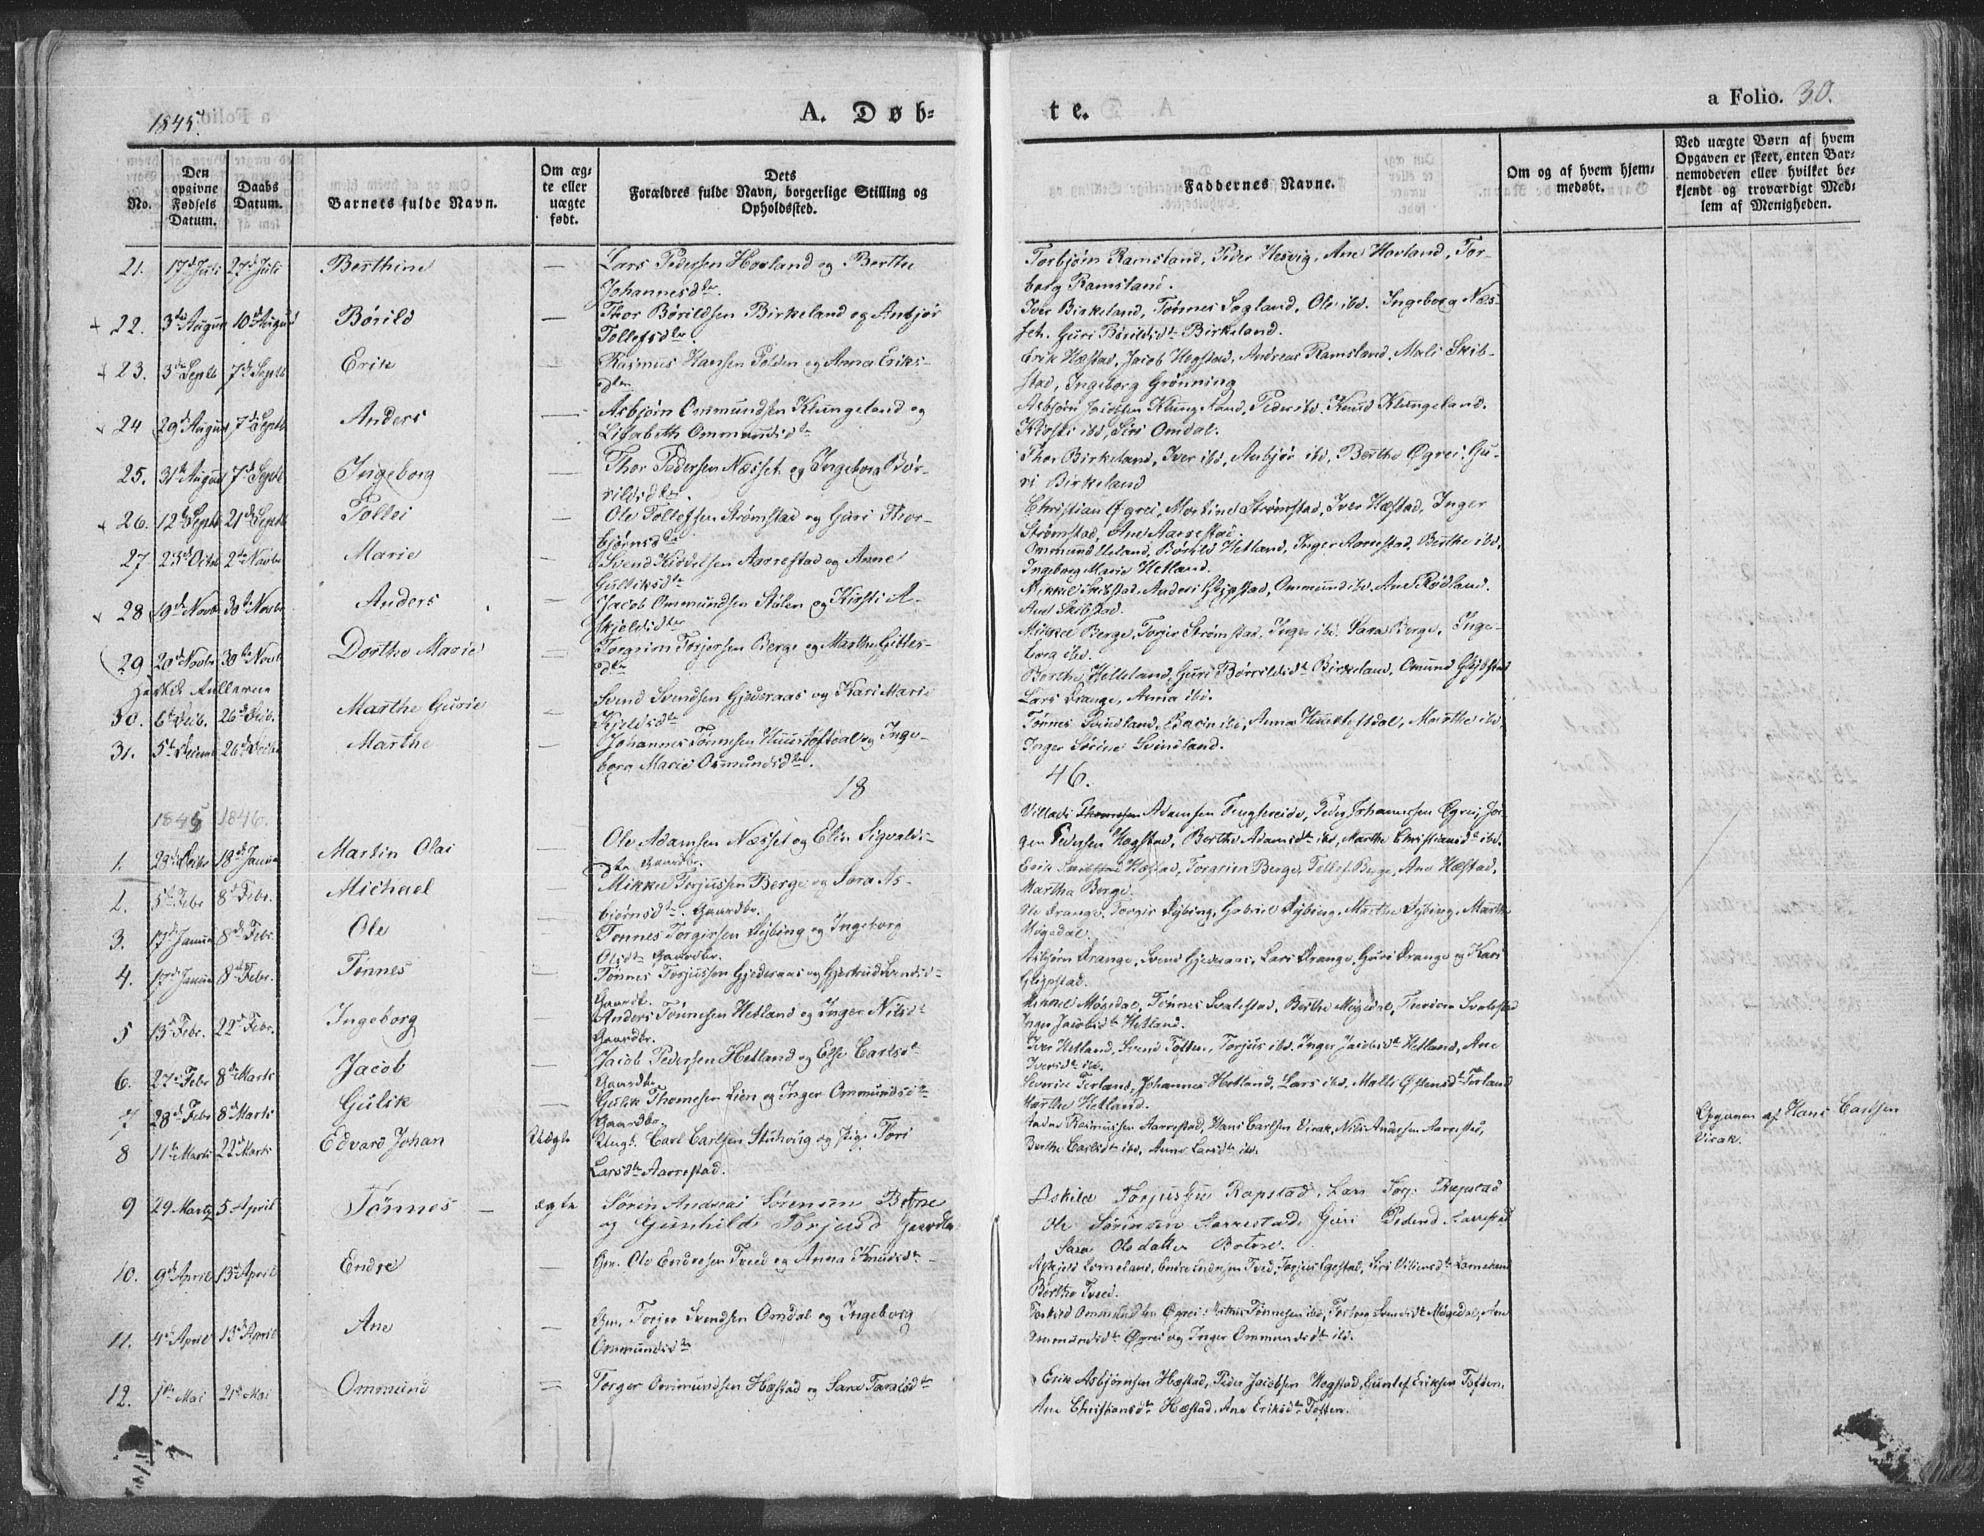 1845.
A. Døb-
te.
a Folio. 30.
No.
Den opgivne Fødsels Datum.
Daabs Datum.
Barnets fulde Navn.
Om ægte eller uægte født.
Dets Forældres fulde Navn, borgerlige Stilling og Opholdssted.
Faddernes Navne.
Om og af hvem hjemmedøbt.
Ved uægte Børn af hvem Opgaven er skeet, enten Barnemoderen eller hvilket bekjendt og troværdigt Medlem af Menigheden.
21. 17d Juli 27d Juli Berthine — Lars Pedersen Hovland og Berthe
Johannesdtr.
Torbjørn Ramsland, Peder Hesvig, Ane Hovland, Tor-
borg Ramsland.
22. 3die August 10d August Børild — Thor Børildsen Birkeland og Anbjør
Tollefsdtr
Iver Birkeland, Tønnes Søgland, Ole ibd. Ingeborg Næs-
set. Guri Børildsdtr Birkeland.
23. 3die Septb 7d Septb Erik — Rasmus Hansen Tolden og Anna Eriks-
dtr
Erik Hæstad, Jacob Hegstad, Andreas Ramsland, Mali Skib-
stad, Ingeborg Grønning
24 29d August 7d Septb Anders — Asbjørn Ommundsen Klungeland og
Lisabeth Ommundsdtr
Asbjørn Jacobsen Klungeland, Peder ibd, Knud Klungeland.
Kirsti ibd, Siri Omdal.
25. 31te August 7d Septb Ingeborg — Thor Pedersen Næsset og Ingeborg Bør-
rildsdtr.
Thor Birkeland, Iver ibd, Anbjør ibd, Berthe Øgrei, Gu-
ri Birkeland
26. 12te Septb 21d Septb Tollei — Ole Tollefsen Strømstad og Guri Thor-
bjørnsdtr
Christian Øgrei, Martine Strømstad, Iver Hæstad, Inger
Strømstad, Ane Aarrestad.
27 23d Octbr 2den Novbr Marie — Svend Kidvelsen Aarrestad og Anne
Gulliksdtr
Ommund Ueland, Børild Hetland, Inger Aarrestad, Berthe ibd,
Ingeborg Marie Hetland.
28 19d Novbr 30te Novbr Anders — Jacob Ommundsen Stølen og Kirsti A-
skjeldsdtr
Mikkel Skibstad, Anders Gljpstad, Ommund ibd, Ane Rødland.
Ane Skibstad.
29 20d Novbr 30te Novb Dorthe Marie — Torgrim Torjersen Berge og Marthe Gittes-
dtr
Mikkel Berge, Torjer Strømstad, Inger ibd. Sara Berge, Inge-
borg ibd.
30. 6te Deib. 26d Deib. Marthe Gurie — Svend Svendsen Gjederaas og Kari Marie
Kjeldsdtr
Berthe Helleland, Guri Børrildsdtr Birkeland, Omund Gljpstad
Lars Drange, Anna ibd.
31. 5te Deiemb 26d Deibr Marthe — Johannes Tønnesen Huustoftdal og Inge-
borg Marie Osmundsdtr.
Tønnes Svindland, ibd, Anna Huustoftdal, Marthe ibd,
Inger Sørine Svindland.
18
46.
1845 1846.
1. 29d Deibr 18d Janua Martin Olai — Ole Adamsen Næsset og Elin Sigvalds-
dtr Gaardbr.
Villads Adamsen Tengsereid, Peder Johannesen Øgrei, Jør-
gen Pedersen Hegstad, Berthe Adamsdtr ibd, Marthe Christiansdtr ibd.
2. 5te Febr 8d Febr. Michael — Mikkel Torjussen Berge og Sara As-
bjørnsdtr. Gaardbr.
Erik Hæstad, Torgrim Berge, Tollef Berge, Ane Hæstad,
Martha Berge.
3. 17d Janua 8d Febr. Ole — Tønnes Torgersen Lybing og Ingeborg
Olsdtr Gaardbr.
Ole Drange, Torger Lybing, Gabriel Lybing, Marthe Lybing, Marthe
Møgedal.
4. 17d Janua 8d Febr. Tønnes — Tønnes Torjussen Gjederaas og Gjertrud Svendsd-
Gaardb.
Asbjørn Drange, Svend Gjederaas, Lars Drange, Guri Drange og Kari
Gljpstad.
5 13d Febr. 22d Febr. Ingeborg — Anders Tønnesen Hetland og Inger Nilsdt
Gaardbr.
Mikkel Møgedal, Tønnes Svalestad, Berthe Møgedal, Svalestad
Inger Jacobsdtr Hetland.
6. 27d Febr 8d Marts Jacob — Jacob Pedersen Hetland og Else Carlsdt
Gaardbr.
Iver Hetland, Svend Toften, Torjus ibd, Inger Jacobsdtr Hetland, Ane
Iversdtr ibd.
7 28d Febr 8d Marts Gulik — Gulik Thomesen Lien og Inger Ommundsdtr
Gaardbr.
Severine Terland, Johannes Hetland, Lars ibd, Malli Østensdtr Terland
Marthe Hetland.
8 11te Marts 22d Marts Edvard Johan Uægte Ungk. Carl Carlsen Stuhoug og Pige Tori
Larsdtr Aarrestad.
Rasmussen Aarrestad, Hans Carlsen Virak, Nils Andersen Aarrestad,
Berthe Carlsdtr ibd, Anne Larsdtr ibd.
Opgaven af Hans Carlsen
Virak.
9 29 Marts 5 April Tønnes — ægte Sören Andreas Sörensen Botne
og Gunhild Torjusd Gaardbr
Askild Torjussen Rapstad, Lars Torj. Rapstad
Ole Sörensen Aarrestad, Guri Pedersd Aarrestad
Sara Olsdatter Botne.
10. 9d April 13d April Endre — Gm. Ole Endresen Tved og Anna Knudsdtr
Askjeld Lomeland, Endre Endresen Tved, Torjus Egestad, Siri Villumsdtr Lomeland
Berthe Tved.
11. 4d April 13d April Ane — Gm. Torjer Svendsen Omdal og Ingeborg
Ommundsdtr
Torkild Ommundsen Øgrei, Tønnesen ibd, Torborg Svendsdtr Møgedal, Ane
Ommundsdtr Øgrei og Inger Ommundsdtr ibd.
12. 1ste Mai 21d Mai Ommund — Torger Ommundsen Hæstad og Sara Taraldsdtr
Erik Asbjørnsen Hæstad, Peder Jacobsen Hegstad, Gunlef Eriksen Toften,
Ane Christiansdtr Hæstad, Ane Eriksdtr Toften.